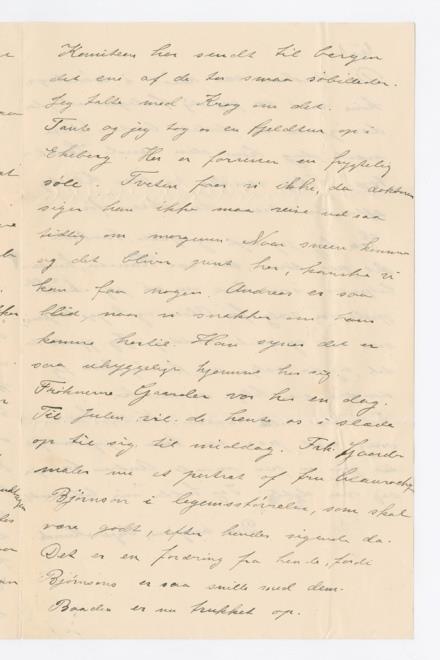 Komiteen har sendt til bergen
det ene af de to smaa söbilleder.
Jeg talte med Krog om det.
Tante og jeg tog os en fjeldtur op i
Ekeberg. Her er forresten en frygtelig
söle. faar vi ikke, da doktoren
siger han ikke maa reise ud saa
tidlig om morgenen. Naar sneen kommer
og det bliver pent her, kanske vi
kan faa nogen. Andreas er saa
blid naar vi snakker om at han
komme hertil. Han synes det er
saa uhyggeligt hjemme hos sig.
Fröknerne Gaarder var her en dag.
Til Julen vil de hente os i slæde
op til sig til middag. Frk. Gaarder
maler nu et portræt af fru
Björnson i legemsstörrelse, som skal
være godt, efter hendes sigende da.
Det er en fordring fra hende, fordi
Björnsons er saa snille med dem.
Baaden er nu trukket op.